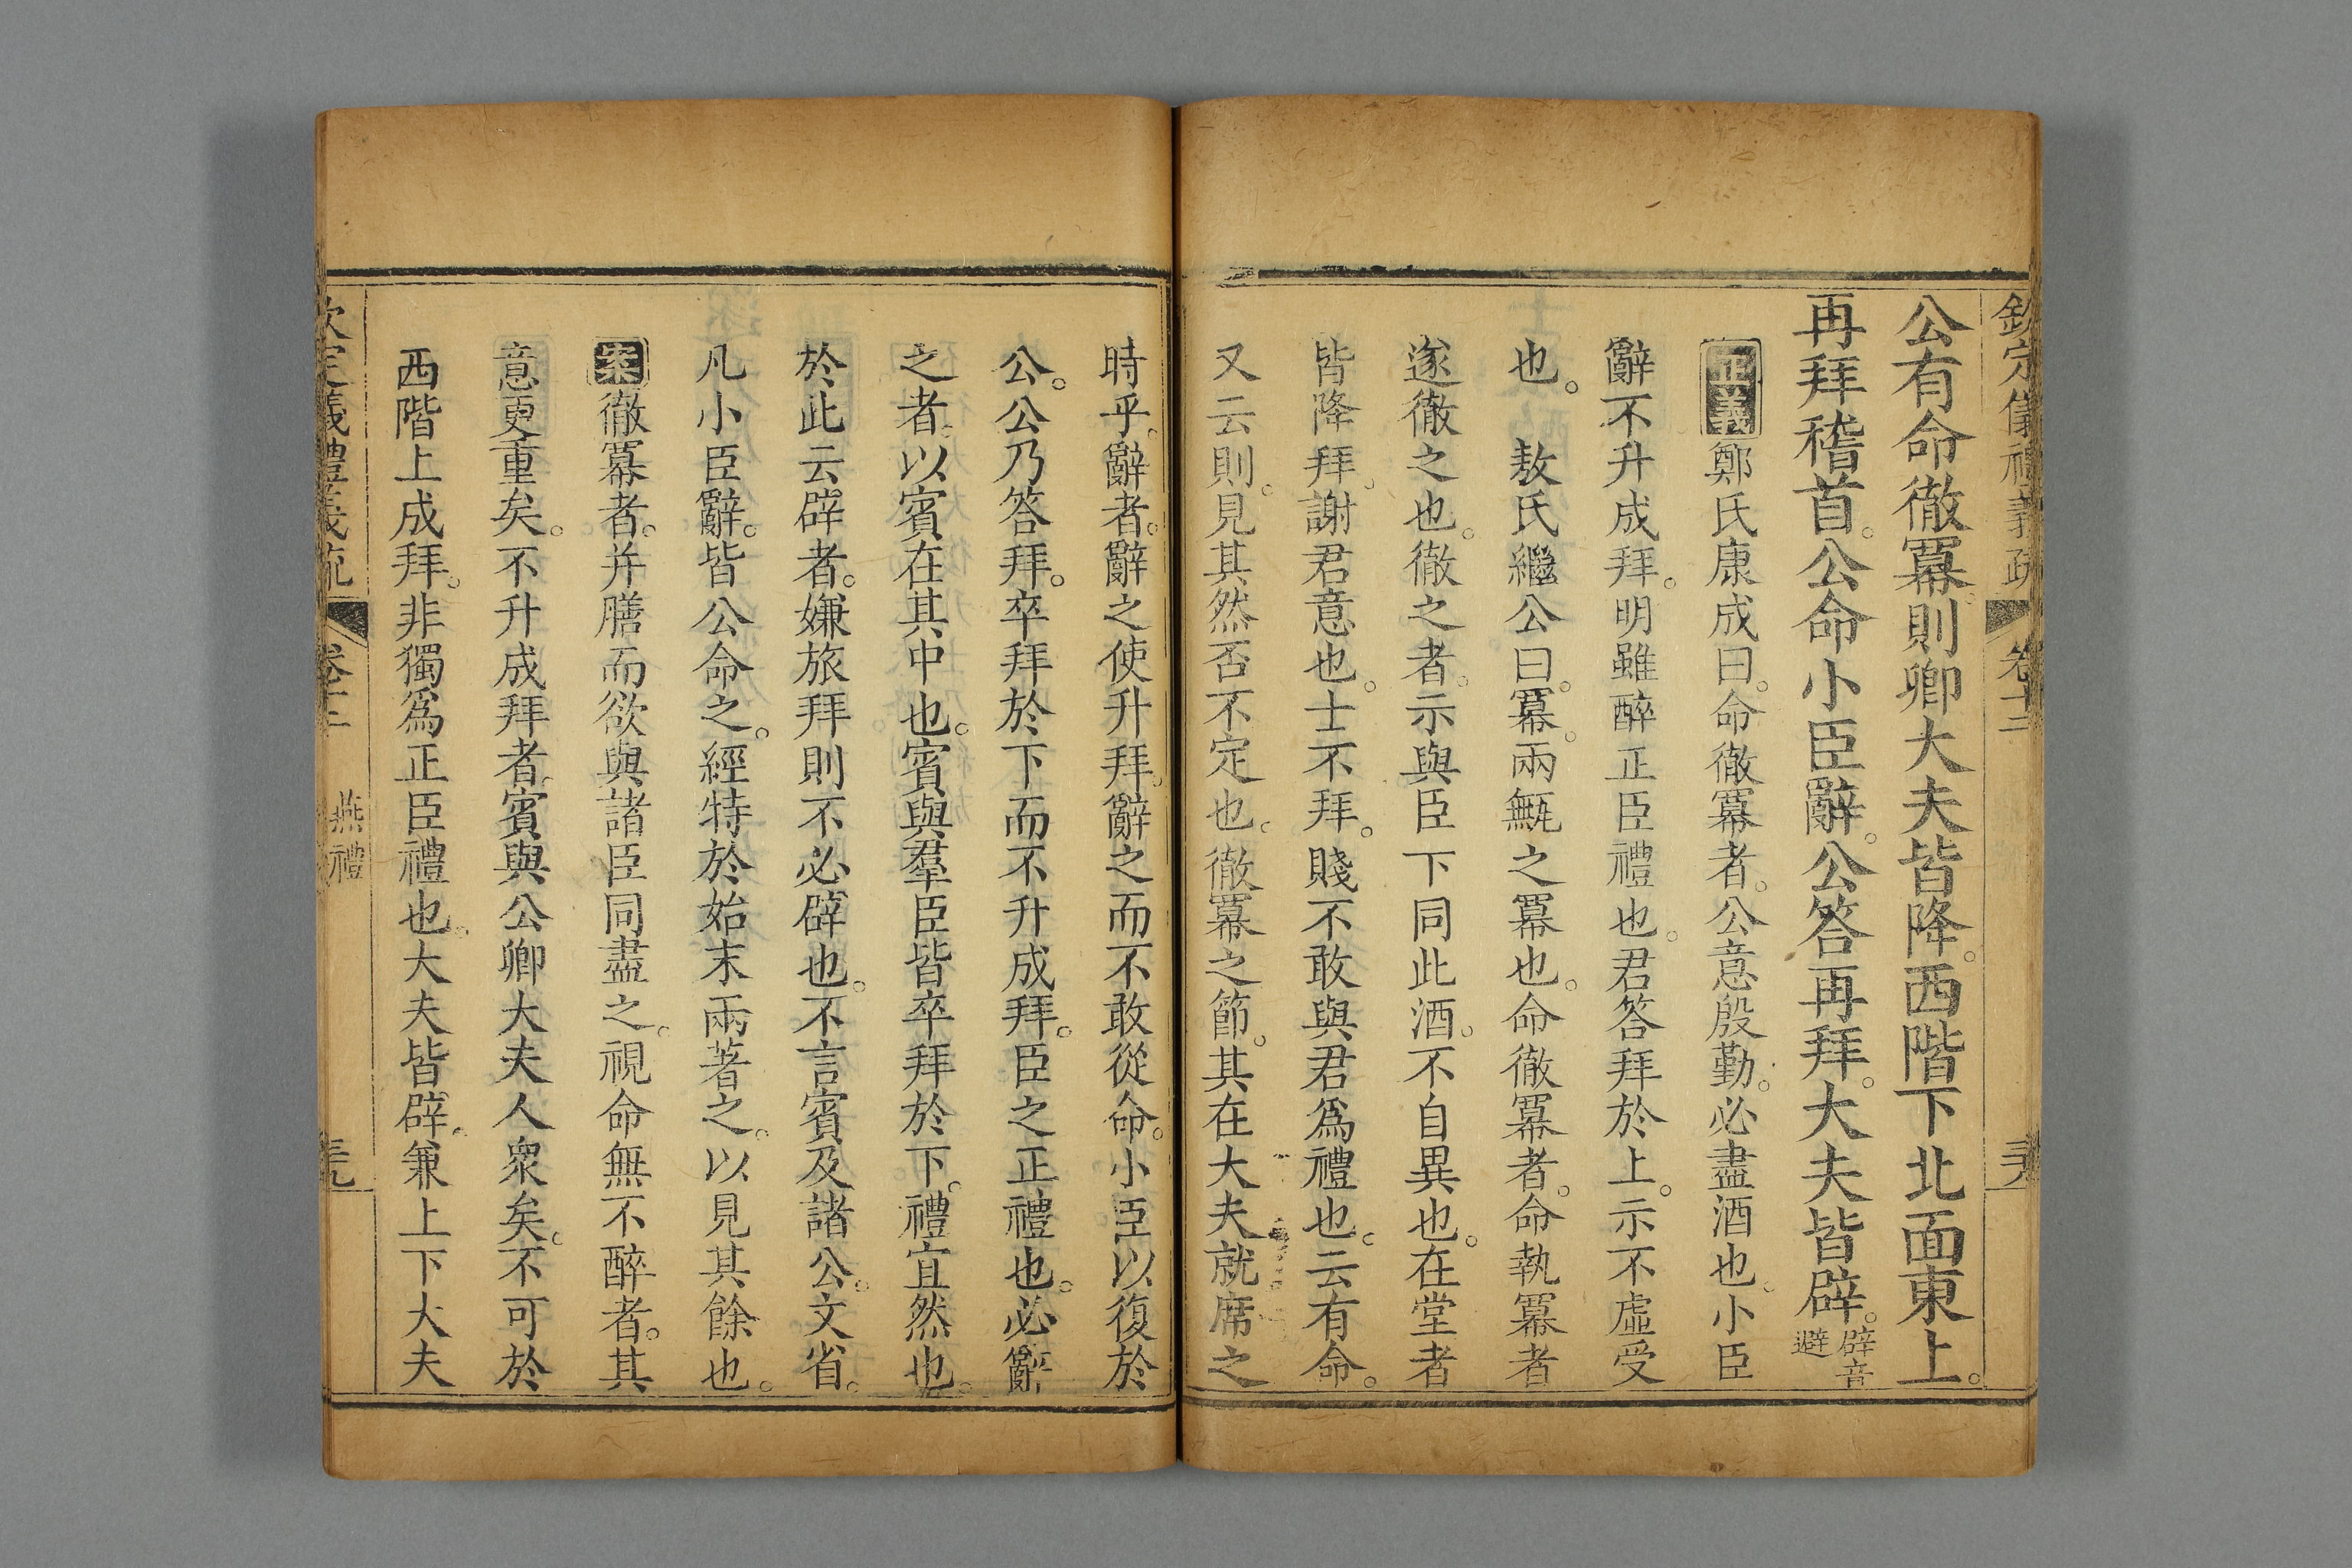 欽定儀禮義疏 卷十二
公有命徹冪則卿大夫皆降。西階下北面東上。
再拜稽首。公命小臣辭。公答再拜。大夫皆辟。辟音避
正義鄭氏康成曰。命徹冪者。公意殷勤。必盡酒也。小臣
辭不升成拜。明雖醉正臣禮也。君答拜於上。示不虛受
也。 敖氏繼公曰。冪。兩甒之冪也。命徹冪者。命執冪者
遂徹之也。徹之者。示與臣下同此酒。不自異也。在堂者
皆降拜。謝君意也。士不拜。賤不敢與君爲禮也。云有命。
又云則。見其然否不定也。徹冪之節。其在大夫就席之
時乎。辭者。辭之使升拜。辭之而不敢從命。小臣以復於
公。公乃答拜。卒拜於下而不升成拜。臣之正禮也。必辭
之者。以賓在其中也。賓與羣臣皆卒拜於下。禮宜然也。
於此云辟者。嫌旅拜則不必辟也。不言賓及諸公。文省。
凡小臣辭。皆公命之。經特於始末兩著之。以見其餘也。
案徹冪者。并膳而欲與諸臣同盡之。視命無不醉者。其
意更重矣。不升成拜者。賓與公卿大夫人衆矣。不可於
西階上成拜。非獨爲正臣禮也。大夫皆辟。兼上下大夫
欽定儀禮義疏 卷十二 燕禮